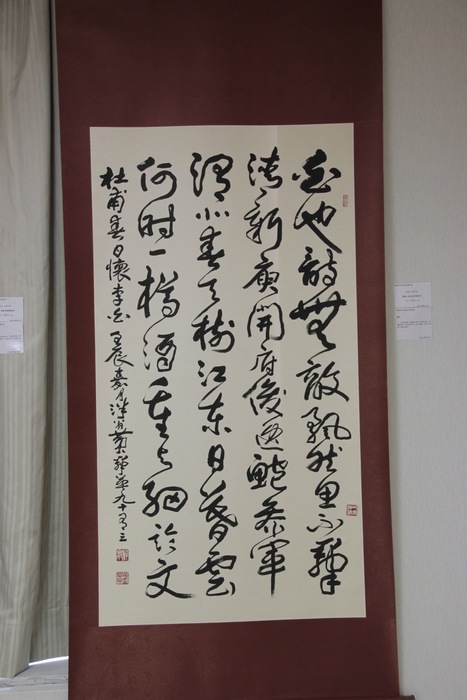 白也詩無敵飄然思不羣
清新庾開府俊逸鮑參軍
渭北春天樹江東日暮雲
何时一樽酒重与細論文
杜甫春日懷李白 壬辰嘉月 九十有三